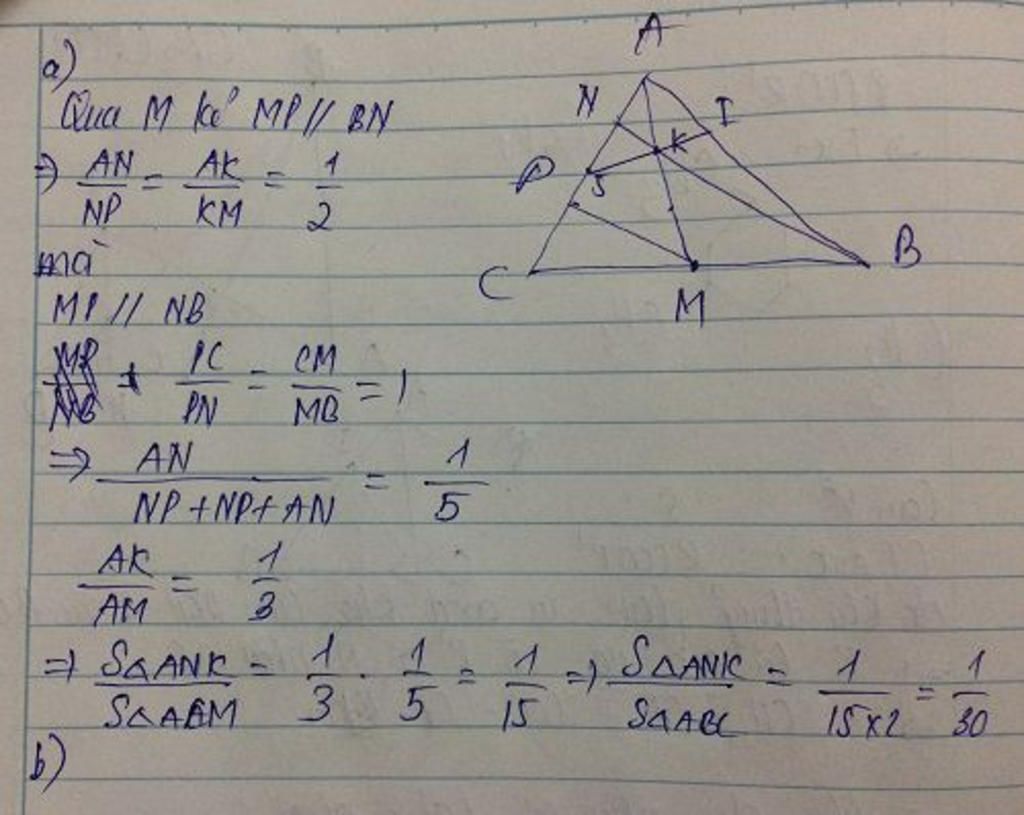 a)
Qua M kẻ MP // BN
⇒ AN/NP = AK/KM = 1/2
mà
MP // NB
PC/PN = CM/MB = 1
⇒ AN/(NP+NP+AN) = 1/5
AK/AM = 1/3
⇒ SΔANK/SΔACM = 1/3 . 1/5 = 1/15 ⇒ SΔANK/SΔABC = 1/(15x2) = 1/30
b)
A
N
I
K
P
S
C
M
B